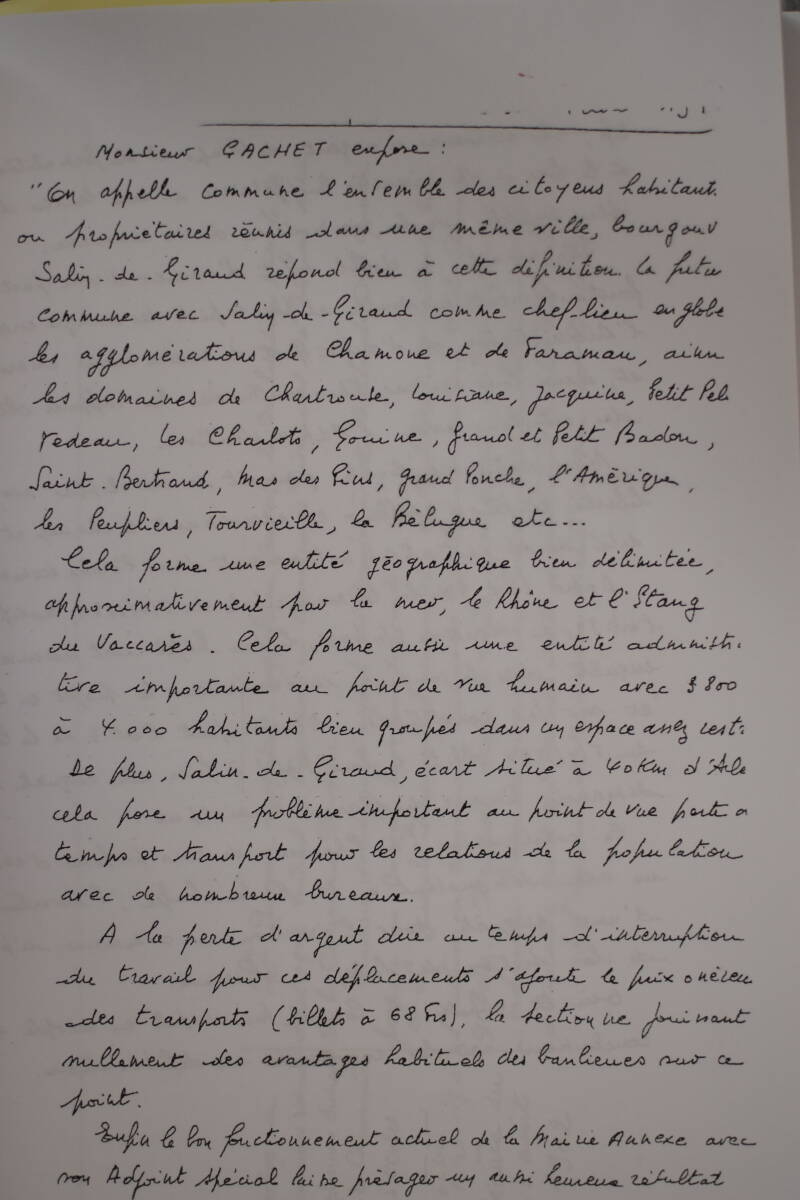 Monsieur GACHET expose :
"On appelle commune l'ensemble des citoyens habitant
ou propriétaires réunis dans une même ville, bourg ou v
Salin-de-Giraud répond bien à cette définition. La futu
commune avec Salin-de-Giraud comme chef-lieu englobe
les agglomérations de Chamone et de Faraman, ainsi
les domaines de Chartrouse, Louisiane, Jacquine, Petit Pel
Vedeau, Les Charlots, Gouine, Grand et Petit Badon,
Saint-Bertrand, Mas des Pins, Grand Ponche, l'Amérique,
les Peupliers, Tourvieille, la Bélugue etc...
Cela forme une entité géographique bien délimitée,
approximativement par la mer, le Rhône et l'Etang
du Vaccarès. Cela forme aussi une entité administr
tive importante au point de vue humain avec 3800
à 4.000 habitants bien groupés dans un espace assez rest.
De plus, Salin-de-Giraud, écart situé à 40 Km d'Arle
cela pose un problème important au point de vue perte d
temps et transport pour les relations de la population
avec de nombreux bureaux.
A la perte d'argent due au temps d'interruption
du travail pour ces déplacements s'ajoute le prix onéreu
des transports (billets à 68 Frs), la section ne jouissant
nullement des avantages habituels des banlieues sur ce
point.
Enfin le bon fonctionnement actuel de la Mairie Annexe avec
son Adjoint spécial laisse présager un aussi heureux résultat